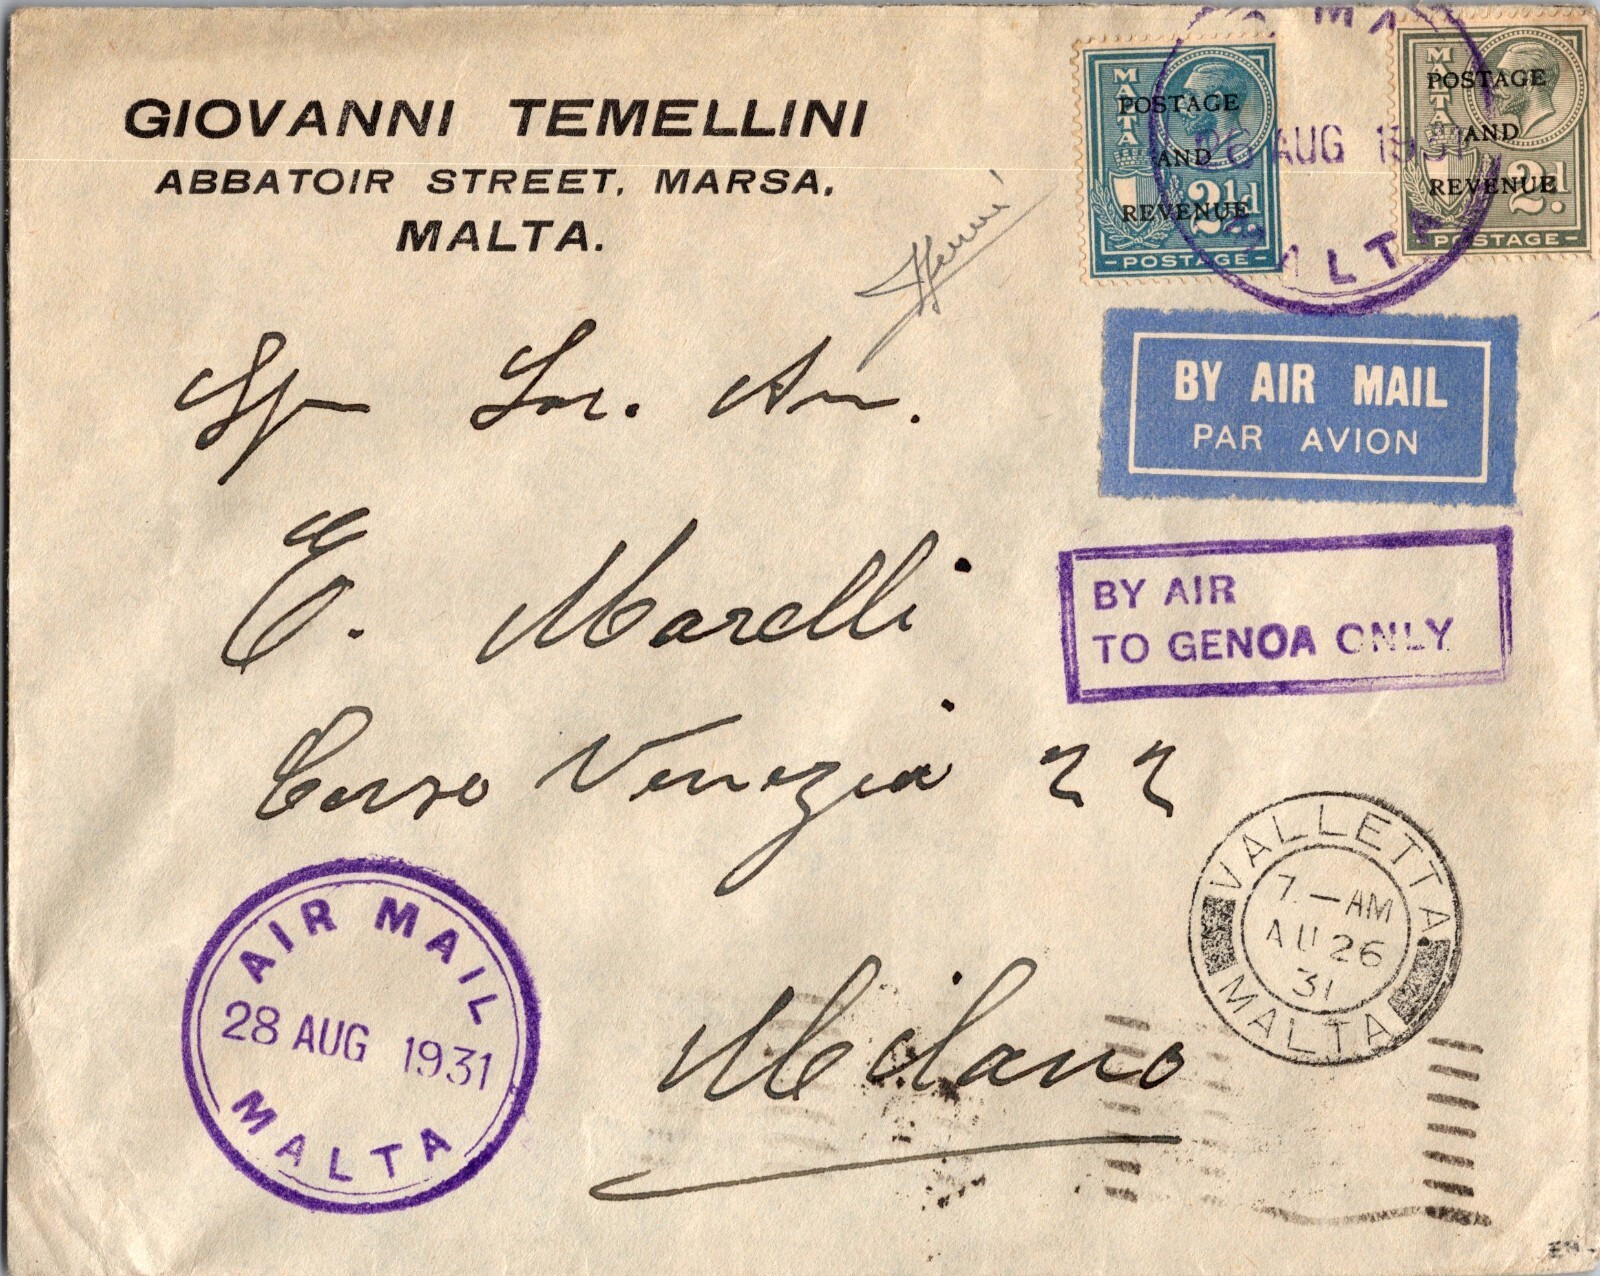 GIOVANNI TEMELLINI
ABBATOIR STREET, MARSA,
MALTA.
MALTA
POSTAGE
AND
REVENUE
2½d
POSTAGE
MALTA
POSTAGE
AND
REVENUE
2d.
POSTAGE
26 AUG 1931
MALTA
BY AIR MAIL
PAR AVION
BY AIR
TO GENOA ONLY
E. Marelli
Corso Venezia 22
Milano
VALLETTA
7.-AM
AU 26
31
MALTA
AIR MAIL
28 AUG 1931
MALTA